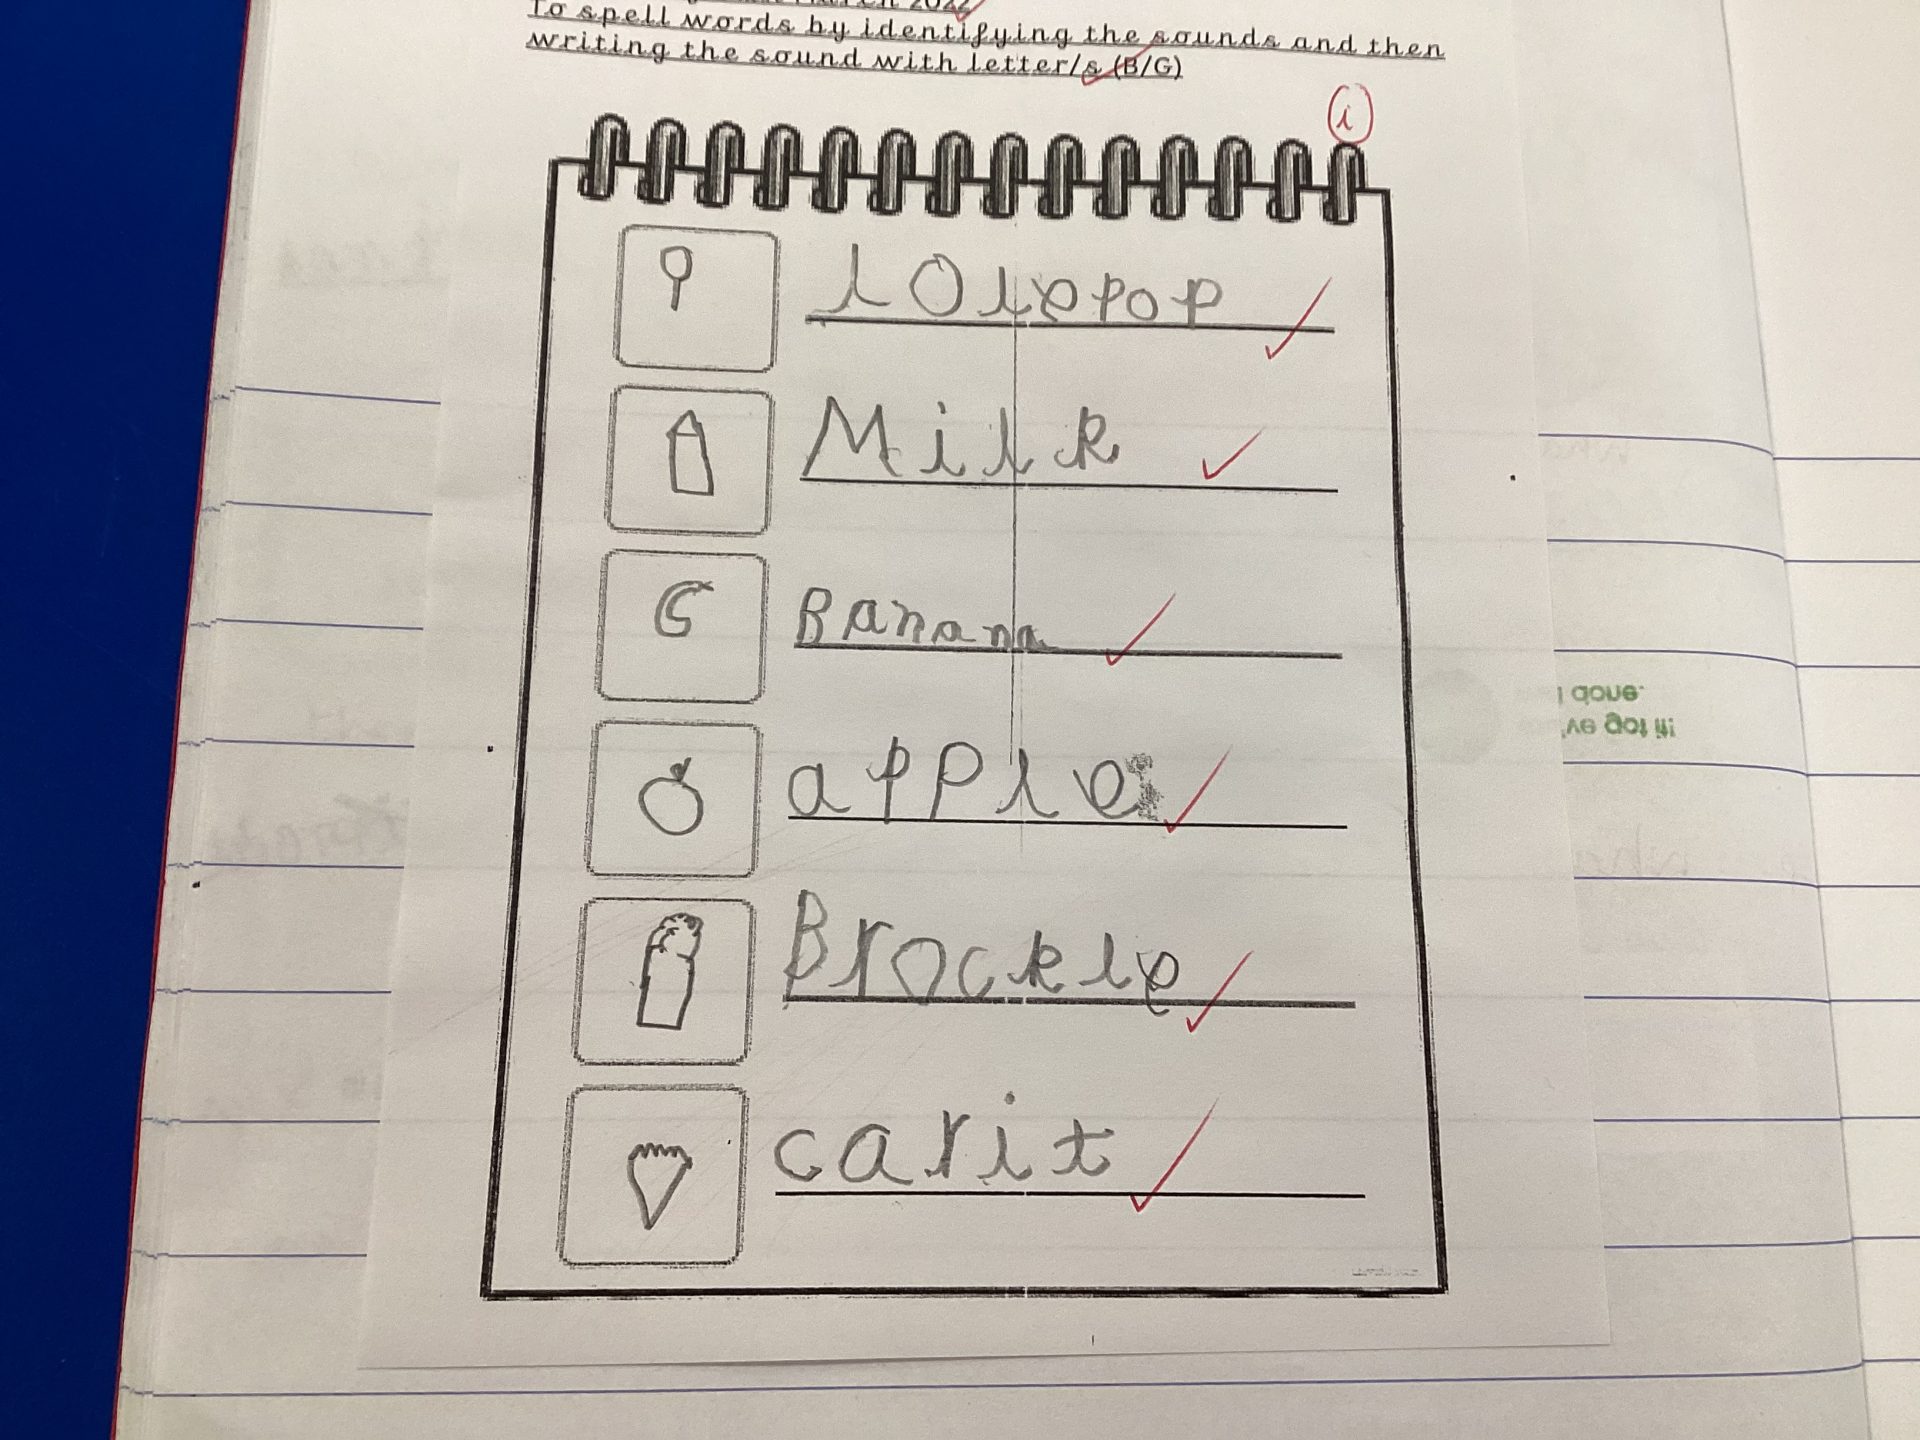 2022
To spell words by identifying the sounds and then
writing the sound with letter/s (B/G)
i
lOlepop
Milk
Banana
apple
Brockle
carit
done.
ve got it!